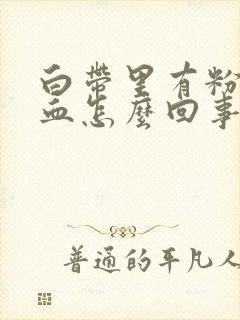 白带里有粉
血怎麼回事
普通的平凡人